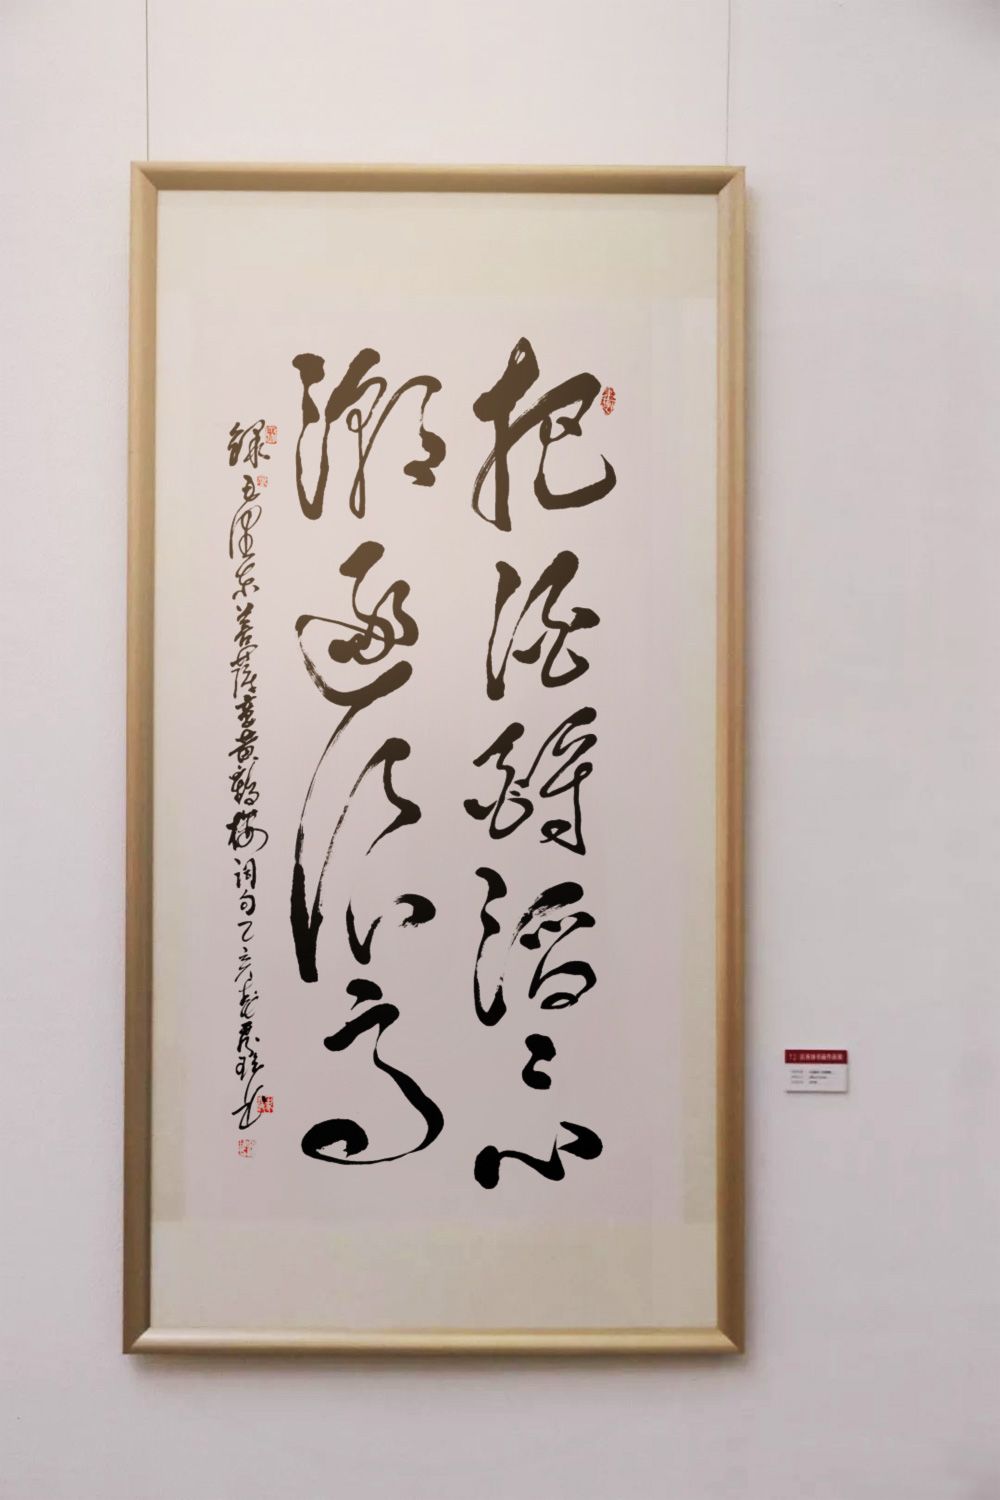 把酒酹滔〻心
潮逐浪高
录毛泽东菩萨蛮黄鹤楼词句乙亥